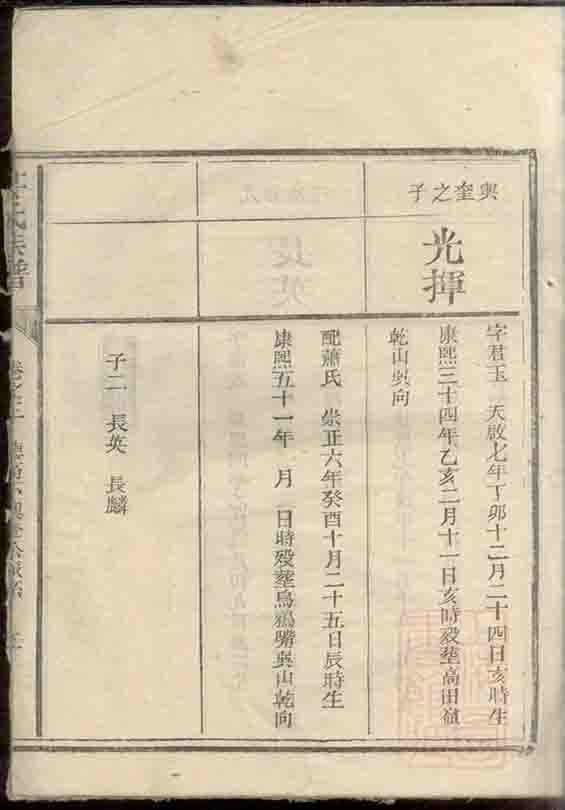 輿奎之子
光揮
字君玉 天啟七年丁卯十二月二十四日亥時生
康熙三十四年乙亥二月十一日亥時歿塟高田嶺
乾山巽向
配蕭氏 崇正六年癸酉十月二十五日辰時生
康熙五十一年 月 日時歿塟烏鴉嘴巽山乾向
子二 長英 長麟
氏族譜